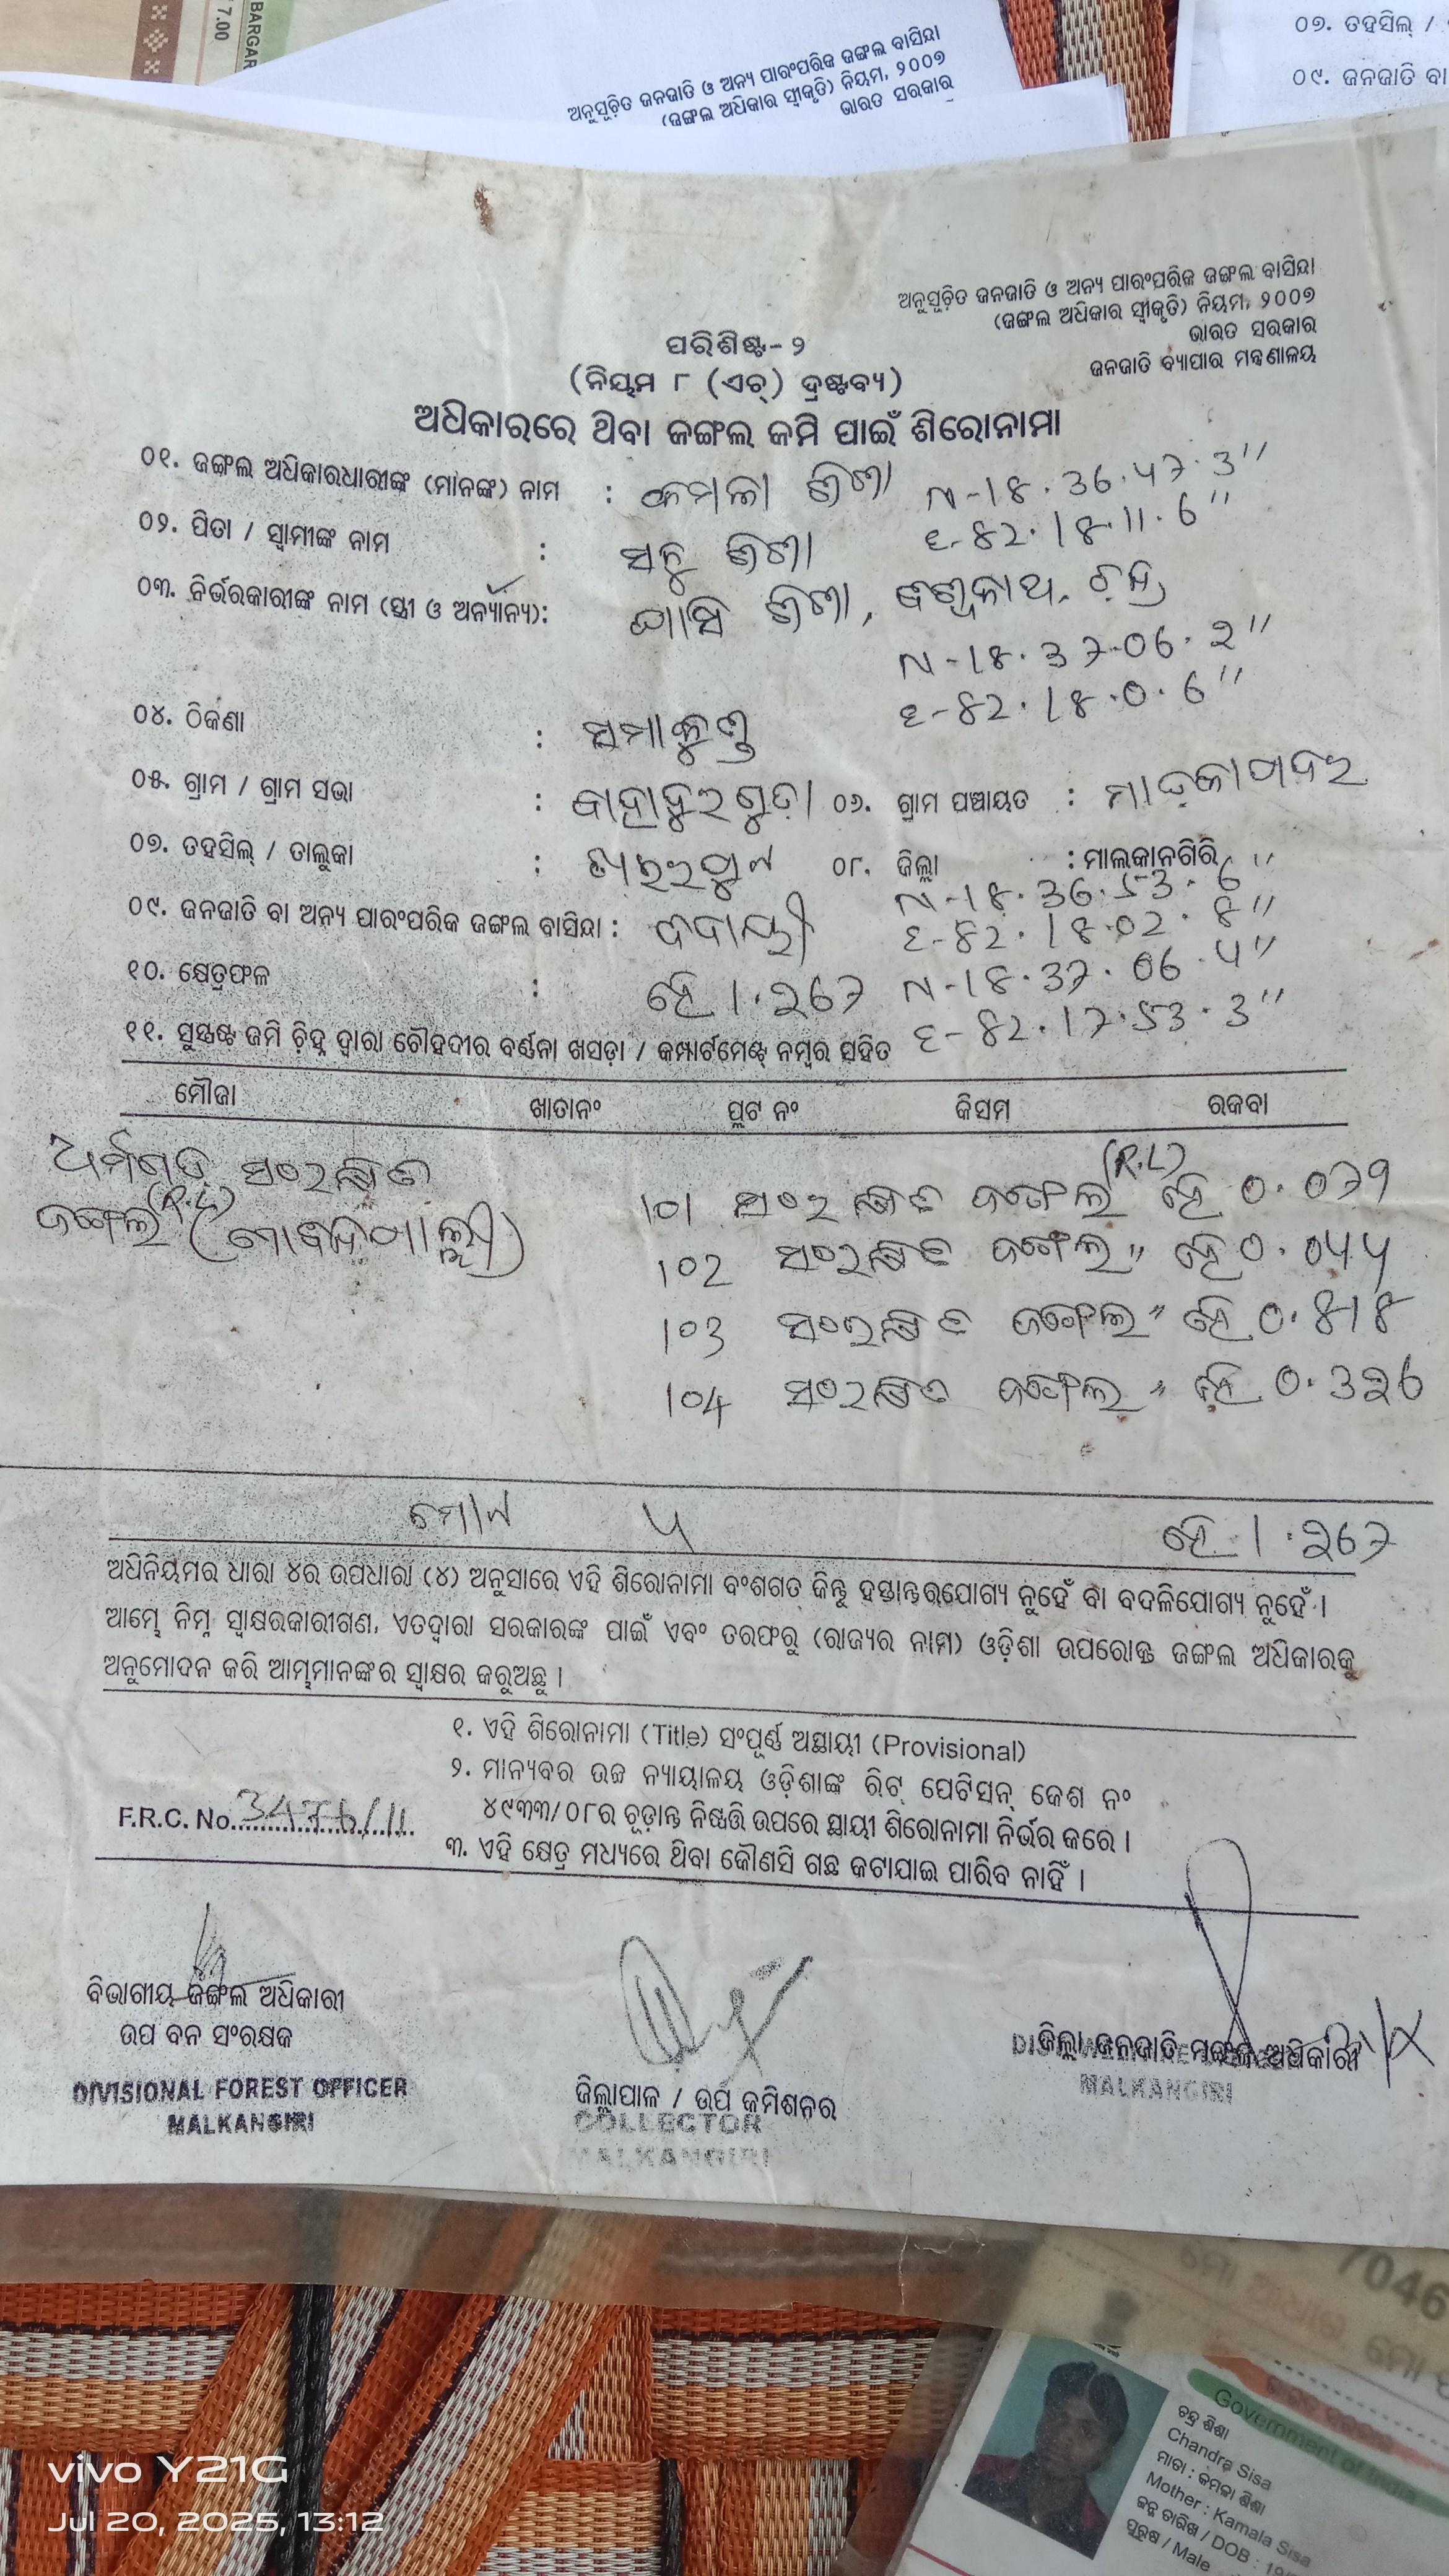 ୧ 7.00
BARGAR
ଅନୁସୂଚିତ ଜନଜାତି ଓ ଅନ୍ୟ ପାରଂପରିକ ଜଙ୍ଗଲ ବାସିନ୍ଦା
(ଜଙ୍ଗଲ ଅଧିକାର ସ୍ୱୀକୃତି) ନିୟମ, ୨୦୦୭
ଭାରତ ସରକାର
୦୭. ତହସିଲ୍ /
୦୯. ଜନଜାତି ବା
ଅନୁସୂଚିତ ଜନଜାତି ଓ ଅନ୍ୟ ପାରଂପରିକ ଜଙ୍ଗଲ ବାସିନ୍ଦା
(ଜଙ୍ଗଲ ଅଧିକାର ସ୍ୱୀକୃତି) ନିୟମ, ୨୦୦୭
ଭାରତ ସରକାର
ଜନଜାତି ବ୍ୟାପାର ମନ୍ତ୍ରଣାଳୟ
ପରିଶିଷ୍ଟ- ୨
(ନିୟମ ୮ (ଏଚ୍) ଦ୍ରଷ୍ଟବ୍ୟ)
ଅଧିକାରରେ ଥିବା ଜଙ୍ଗଲ ଜମି ପାଇଁ ଶିରୋନାମା
୦୧. ଜଙ୍ଗଲ ଅଧିକାରଧାରୀଙ୍କ (ମାନଙ୍କ) ନାମ : କମଳା ଶିଶା N-18.36.47.3"
୦୨. ପିତା / ସ୍ୱାମୀଙ୍କ ନାମ : ସନୁ ଶିଶା E-82.18.11.6"
୦୩. ନିର୍ଭରକାରୀଙ୍କ ନାମ (ସ୍ତ୍ରୀ ଓ ଅନ୍ୟାନ୍ୟ): ଘାସି ଶିଶା,
N-18.37.06.2"
E-82.18.0.6"
୦୪. ଠିକଣା :
୦୫. ଗ୍ରାମ / ଗ୍ରାମ ସଭା : ୦୬. ଗ୍ରାମ ପଞ୍ଚାୟତ :
୦୭. ତହସିଲ୍ / ତାଲୁକା : ୦୮. ଜିଲ୍ଲା : ମାଲକାନଗିରି
N-18.36.53.6"
୦୯. ଜନଜାତି ବା ଅନ୍ୟ ପାରଂପରିକ ଜଙ୍ଗଲ ବାସିନ୍ଦା : E-82.18.02.8"
୧୦. କ୍ଷେତ୍ରଫଳ : ହେ 1.267 N-18.37.06.4"
୧୧. ସୁସ୍ପଷ୍ଟ ଜମି ଚିହ୍ନ ଦ୍ୱାରା ଚୌହଦୀର ବର୍ଣ୍ଣନା ଖସଡ଼ା / କମ୍ପାର୍ଟମେଣ୍ଟ୍ ନମ୍ବର ସହିତ E-82.17.53.3"
ମୌଜା ଖାତାନଂ ପ୍ଲଟ ନଂ କିସମ ରକବା
ସଂରକ୍ଷିତ
ଜଙ୍ଗେଲ (R.L)
101 ସଂରକ୍ଷିତ ଜଙ୍ଗେଲ (R.L) ହେ 0.079
102 ସଂରକ୍ଷିତ ଜଙ୍ଗେଲ " ହେ 0.044
103 ସଂରକ୍ଷିତ ଜଙ୍ଗେଲ " ହେ 0.818
104 ସଂରକ୍ଷିତ ଜଙ୍ଗେଲ " ହେ 0.326
ମୋଟ 4 ହେ 1.267
ଅଧିନିୟମର ଧାରା ୪ର ଉପଧାରା (୪) ଅନୁସାରେ ଏହି ଶିରୋନାମା ବଂଶଗତ୍ କିନ୍ତୁ ହସ୍ତାନ୍ତରଯୋଗ୍ୟ ନୁହେଁ ବା ବଦଳିଯୋଗ୍ୟ ନୁହେଁ ।
ଆମ୍ଭେ ନିମ୍ନ ସ୍ୱାକ୍ଷରକାରୀଗଣ, ଏତଦ୍ୱାରା ସରକାରଙ୍କ ପାଇଁ ଏବଂ ତରଫରୁ (ରାଜ୍ୟର ନାମ) ଓଡ଼ିଶା ଉପରୋକ୍ତ ଜଙ୍ଗଲ ଅଧିକାରକୁ
ଅନୁମୋଦନ କରି ଆମ୍ଭମାନଙ୍କର ସ୍ୱାକ୍ଷର କରୁଅଛୁ ।
୧. ଏହି ଶିରୋନାମା (Title) ସଂପୂର୍ଣ୍ଣ ଅସ୍ଥାୟୀ (Provisional)
୨. ମାନ୍ୟବର ଉଚ୍ଚ ନ୍ୟାୟାଳୟ ଓଡ଼ିଶାଙ୍କ ରିଟ୍ ପେଟିସନ୍ କେଶ ନଂ
୪୯୩୩/୦୮ର ଚୂଡ଼ାନ୍ତ ନିଷ୍ପତ୍ତି ଉପରେ ସ୍ଥାୟୀ ଶିରୋନାମା ନିର୍ଭର କରେ ।
F.R.C. No.
୩. ଏହି କ୍ଷେତ୍ର ମଧ୍ୟରେ ଥିବା କୌଣସି ଗଛ କଟାଯାଇ ପାରିବ ନାହିଁ ।
ବିଭାଗୀୟ ଜଙ୍ଗଲ ଅଧିକାରୀ
ଉପ ବନ ସଂରକ୍ଷକ
DIVISIONAL FOREST OFFICER
MALKANGIRI
ଜିଲ୍ଲାପାଳ / ଉପ କମିଶନର
COLLECTOR
MALKANGIRI
ଜିଲ୍ଲା ଜନଜାତି ମଙ୍ଗଳ ଅଧିକାରୀ
MALKANGIRI
7046
Government of India
ଚନ୍ଦ୍ର ଶିଶା
Chandra Sisa
ମାତା : କମଳା ଶିଶା
Mother : Kamala Sisa
ଜନ୍ମ ତାରିଖ / DOB : 19
ପୁରୁଷ / Male
vivo Y21G
Jul 20, 2025, 13:12